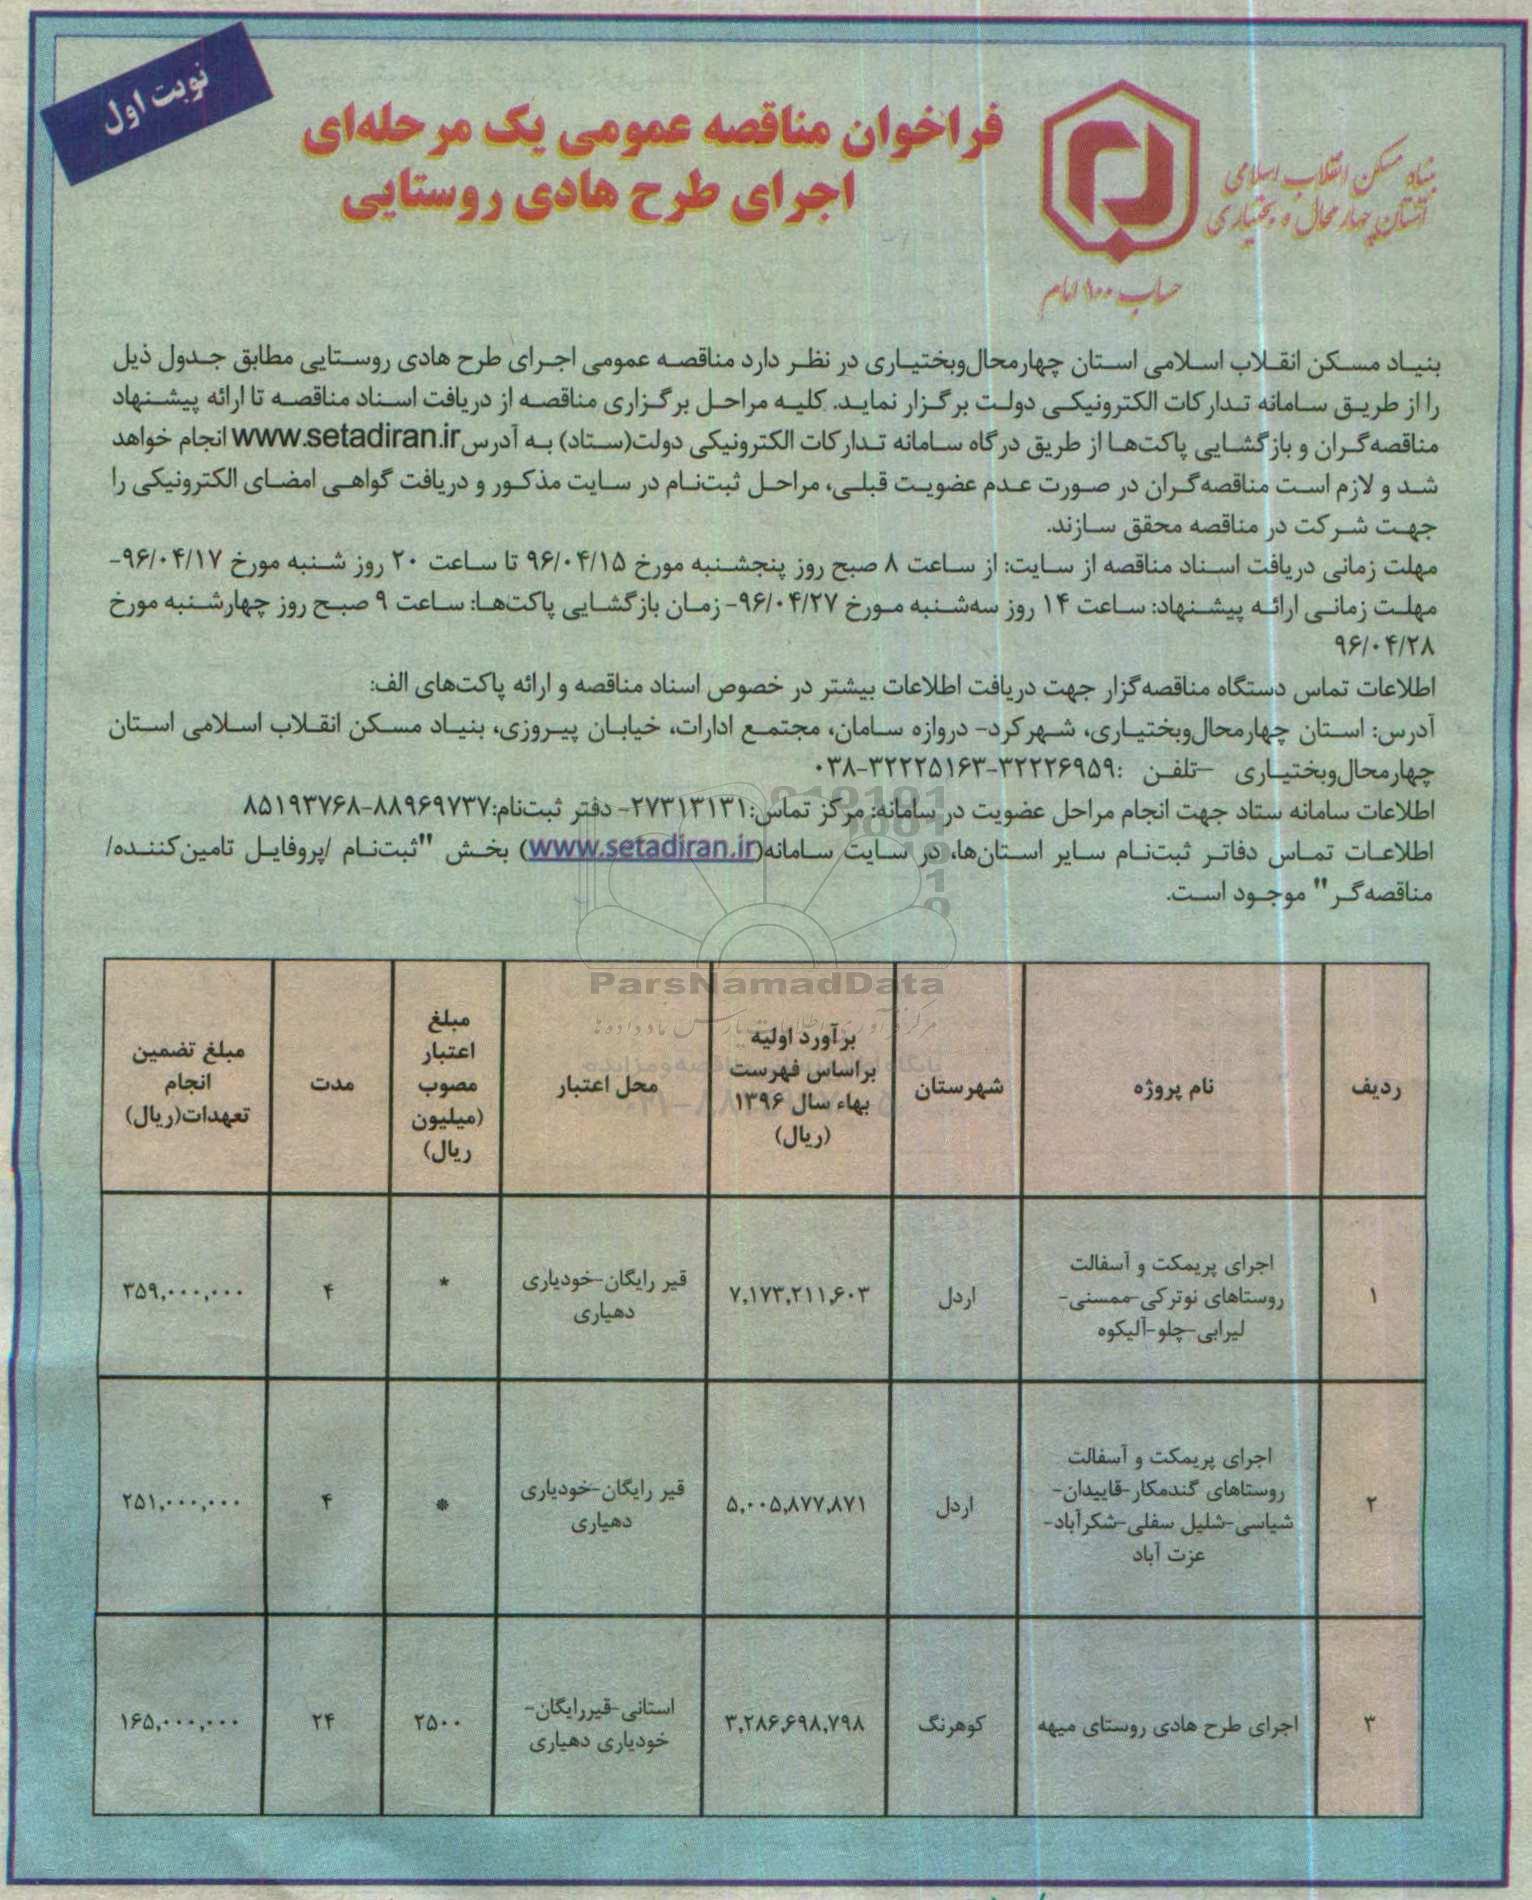 نوبت اول
بنیاد مسکن انقلاب اسلامی
استان چهارمحال و بختیاری
حساب ۱۰۰ امام
فراخوان مناقصه عمومی یک مرحله‌ای
اجرای طرح هادی روستایی
بنیاد مسکن انقلاب اسلامی استان چهارمحال‌وبختیاری در نظر دارد مناقصه عمومی اجرای طرح هادی روستایی مطابق جدول ذیل
را از طریق سامانه تدارکات الکترونیکی دولت برگزار نماید. کلیه مراحل برگزاری مناقصه از دریافت اسناد مناقصه تا ارائه پیشنهاد
مناقصه‌گران و بازگشایی پاکت‌ها از طریق درگاه سامانه تدارکات الکترونیکی دولت(ستاد) به آدرس www.setadiran.ir انجام خواهد
شد و لازم است مناقصه‌گران در صورت عدم عضویت قبلی، مراحل ثبت‌نام در سایت مذکور و دریافت گواهی امضای الکترونیکی را
جهت شرکت در مناقصه محقق سازند.
مهلت زمانی دریافت اسناد مناقصه از سایت: از ساعت ۸ صبح روز پنجشنبه مورخ ۹۶/۰۴/۱۵ تا ساعت ۲۰ روز شنبه مورخ ۹۶/۰۴/۱۷-
مهلت زمانی ارائه پیشنهاد: ساعت ۱۴ روز سه‌شنبه مورخ ۹۶/۰۴/۲۷- زمان بازگشایی پاکت‌ها: ساعت ۹ صبح روز چهارشنبه مورخ
۹۶/۰۴/۲۸
اطلاعات تماس دستگاه مناقصه‌گزار جهت دریافت اطلاعات بیشتر در خصوص اسناد مناقصه و ارائه پاکت‌های الف:
آدرس: استان چهارمحال‌وبختیاری، شهرکرد- دروازه سامان، مجتمع ادارات، خیابان پیروزی، بنیاد مسکن انقلاب اسلامی استان
چهارمحال‌وبختیاری -تلفن :۳۲۲۲۶۹۵۹-۳۲۲۲۵۱۶۳-۰۳۸
اطلاعات سامانه ستاد جهت انجام مراحل عضویت در سامانه: مرکز تماس:۲۷۳۱۳۱۳۱- دفتر ثبت‌نام:۸۸۹۶۹۷۳۷-۸۵۱۹۳۷۶۸
اطلاعات تماس دفاتر ثبت‌نام سایر استان‌ها، در سایت سامانه(www.setadiran.ir) بخش "ثبت‌نام /پروفایل تامین‌کننده/
مناقصه‌گر" موجود است.
ParsNamadData
ردیف
نام پروژه
شهرستان
برآورد اولیه
براساس فهرست
بهاء سال ۱۳۹۶
(ریال)
محل اعتبار
مبلغ
اعتبار
مصوب
(میلیون
ریال)
مدت
مبلغ تضمین
انجام
تعهدات(ریال)
۱
اجرای پریمکت و آسفالت
روستاهای نوترکی-ممسنی-
لیرابی-چلو-آلیکوه
اردل
۷,۱۷۳,۲۱۱,۶۰۳
قیر رایگان-خودیاری
دهیاری
*
۴
۳۵۹,۰۰۰,۰۰۰
۲
اجرای پریمکت و آسفالت
روستاهای گندمکار-قاییدان-
شیاسی-شلیل سفلی-شکرآباد-
عزت آباد
اردل
۵,۰۰۵,۸۷۷,۸۷۱
قیر رایگان-خودیاری
دهیاری
*
۴
۲۵۱,۰۰۰,۰۰۰
۳
اجرای طرح هادی روستای میهه
کوهرنگ
۳,۲۸۶,۶۹۸,۷۹۸
استانی-قیررایگان-
خودیاری دهیاری
۲۵۰۰
۲۴
۱۶۵,۰۰۰,۰۰۰